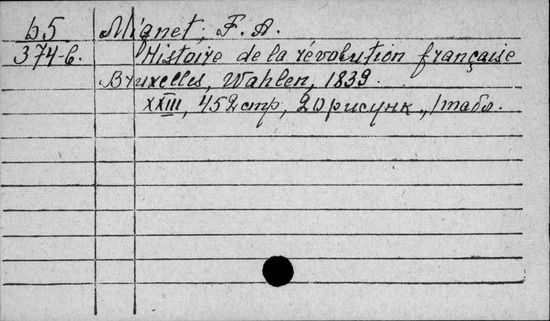 b5 Mignet, F. A.
374-6. Histoire de la révolution française
Bruxelles, Wahlen, 1839.
XXIII, 452 стр, 20 рисунк., 1 табл.